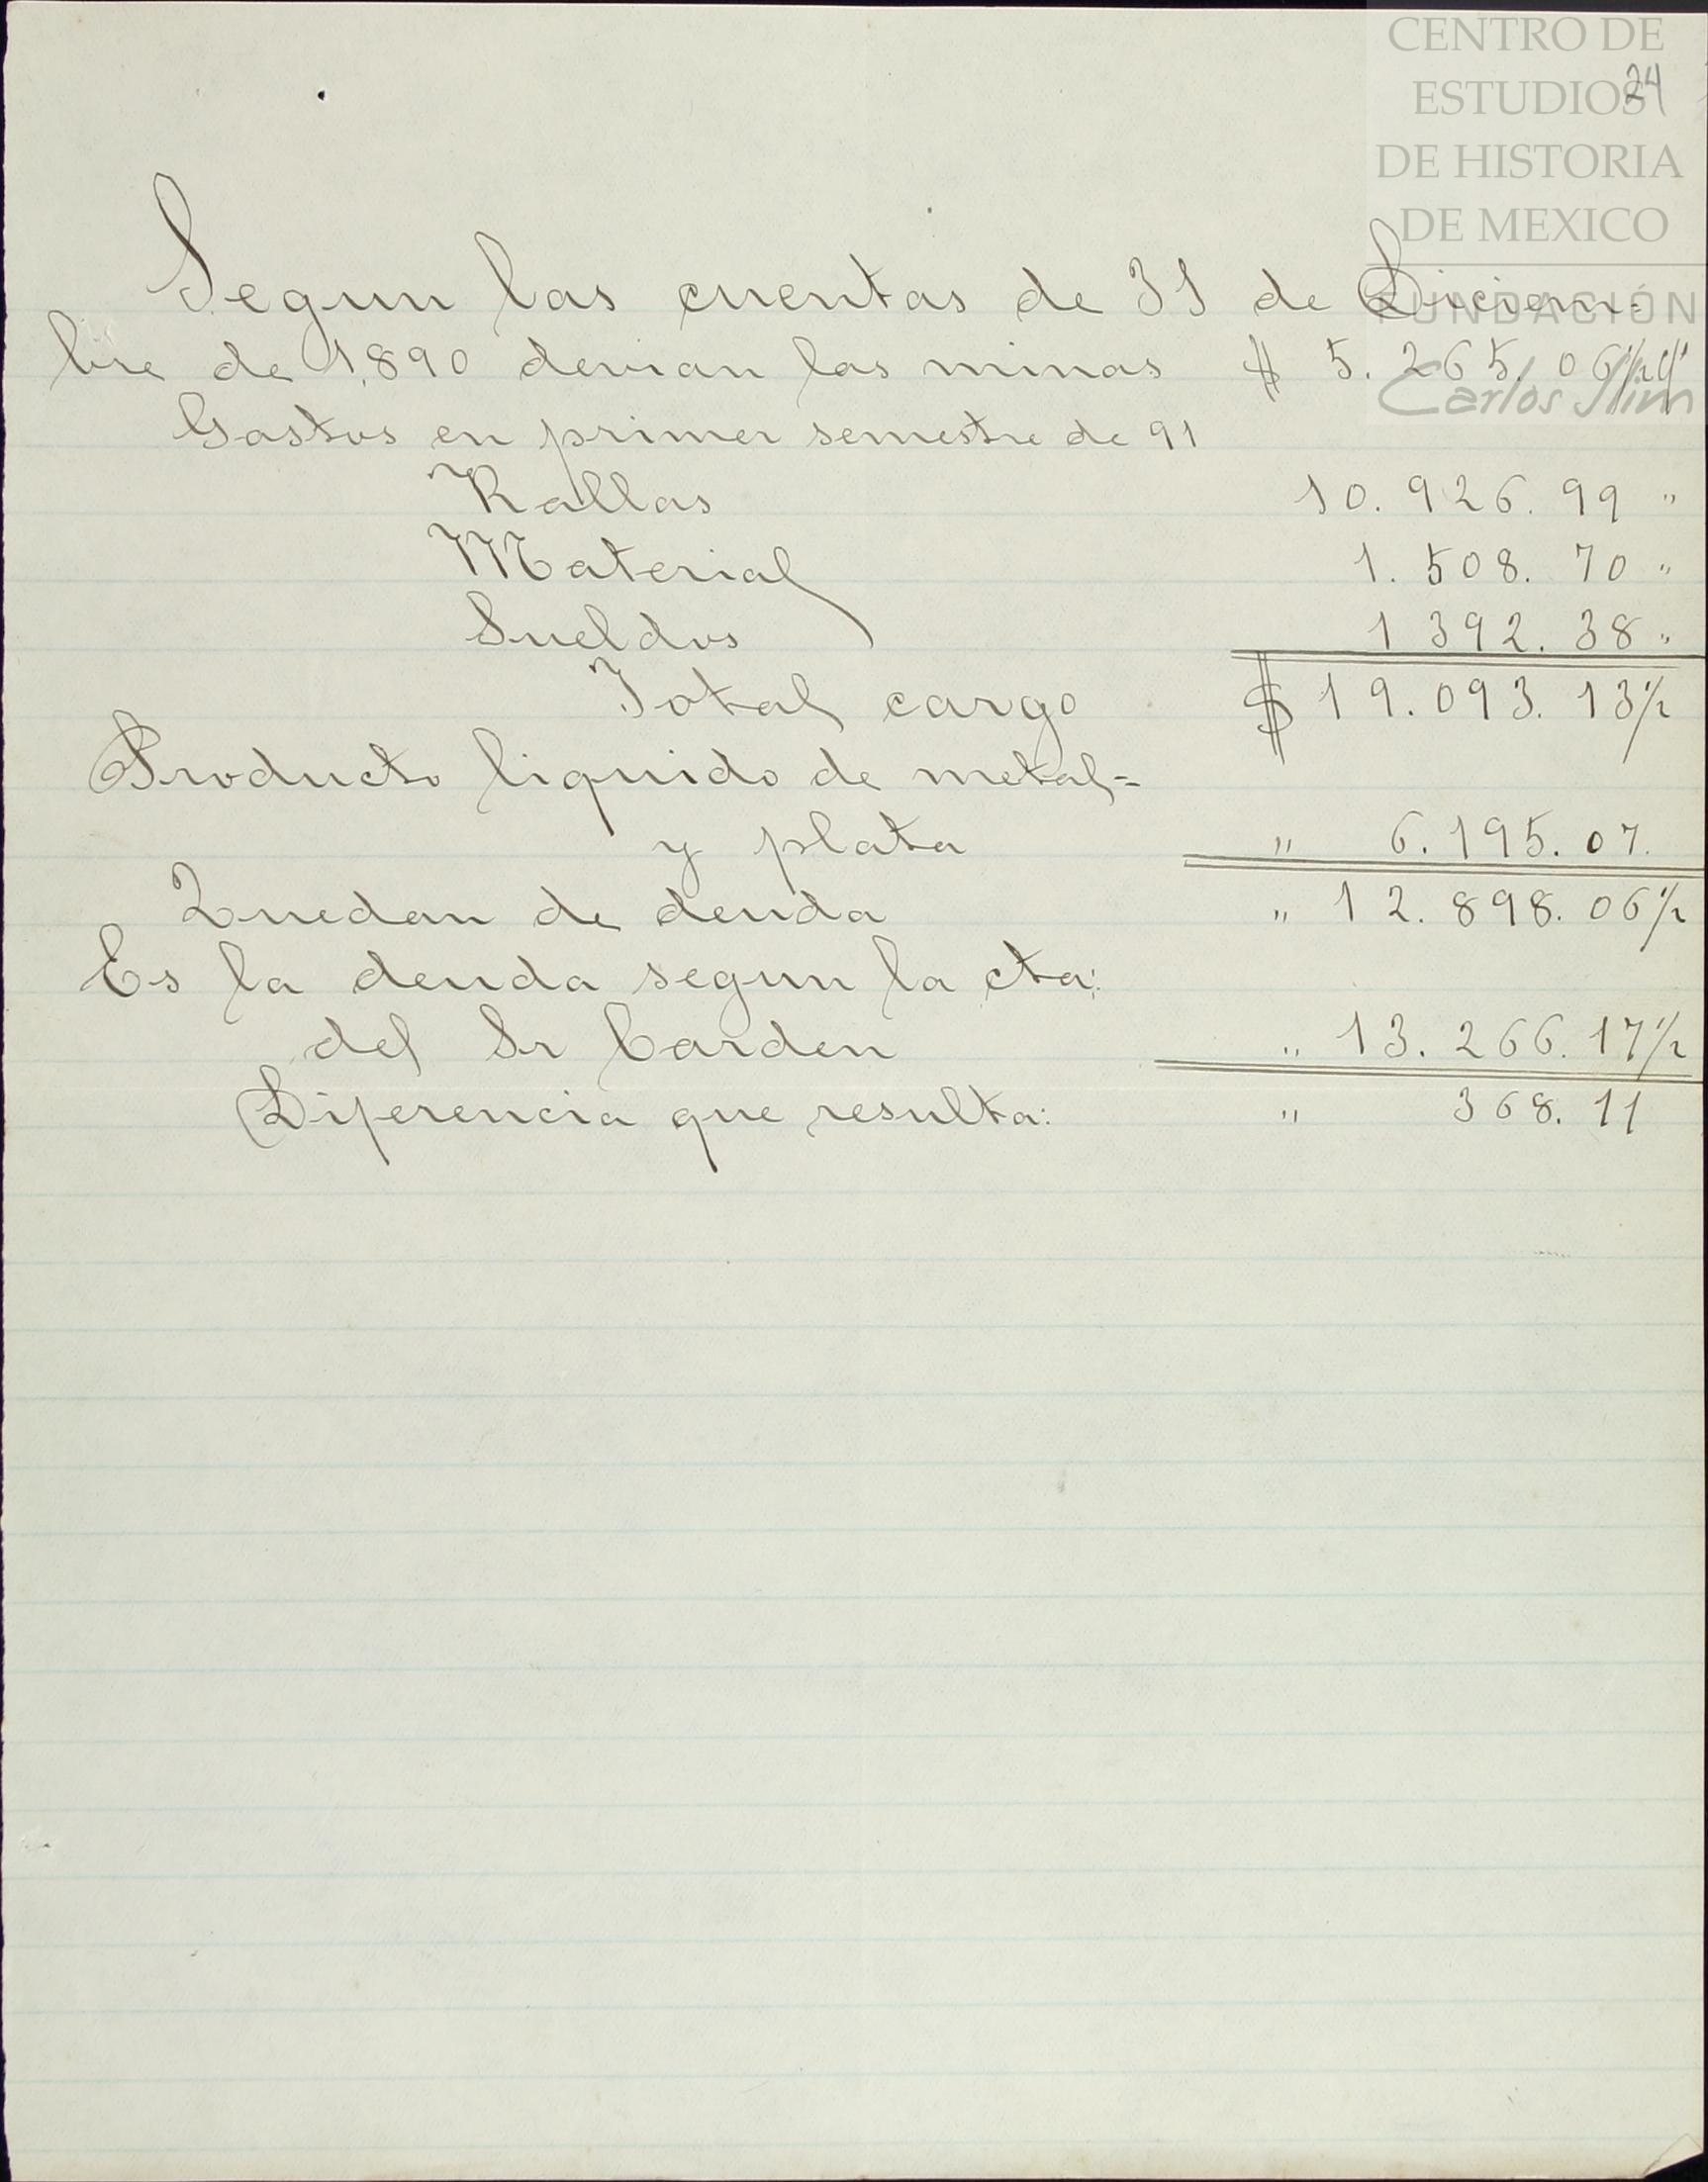 CENTRO DE
ESTUDIOS
24
DE HISTORIA
DE MEXICO
FUNDACIÓN
Carlos Slim
Segun las cuentas de 31 de Diciem-
bre de 1,890 devian las minas $ 5.265.06½
Gastos en primer semestre de 91
Rallas 10.926.99 "
Material 1.508.70 "
Sueldos 1392.38 "
Total cargo $ 19.093.13½
Producto liquido de metal=
y plata " 6.195.07.
Quedan de deuda " 12.898.06½
Es la deuda segun la cta:
del Sr Carden " 13.266.17½
Diferencia que resulta: " 368.11